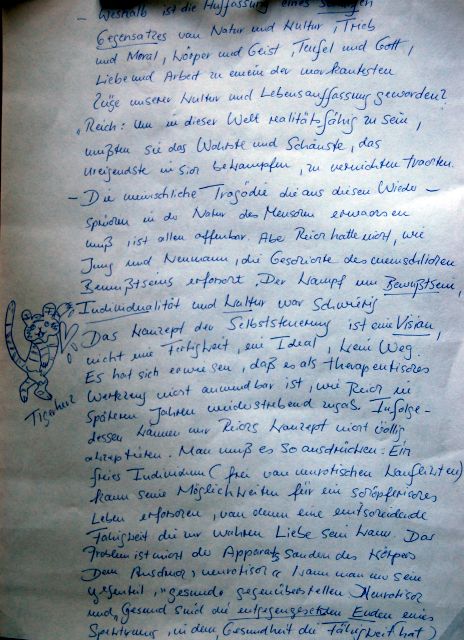 - Weshalb ist die Auffassung eines
Gegensatzes von Natur und Kultur, Trieb
und Moral, Körper und Geist, Teufel und Gott,
Liebe und Arbeit zu einem der markantesten
Züge unserer Kultur und Lebensauffassung geworden?
"Reich: Um in dieser Welt realitätsfähig zu sein,
mußten sie das Wahrste und Schönste, das
ureigendste in sich bekämpfen, zu vernichten trachten.
- Die menschliche Tragödie die aus diesen Wieder-
sprüchen in der Natur des Menschen erwachsen
muß, ist allen offenbar. Aber Reich hatte nicht, wie
Jung und Neumann, die Geschichte des menschlichen
Bewußtseins erforscht. Der Kampf um Bewußtsein,
Individualität und Kultur war schwierig
Das Konzept der Selbststeuerung ist eine Vision,
nicht eine Fähigkeit, ein Ideal, kein Weg.
Es hat sich erwiesen, daß es als therapeutisches
Werkzeug nicht anwendbar ist, wie Reich in
Tigerherz
späteren Jahren widerstrebend zugab. Infolge-
dessen können wir Reichs Konzept nicht völlig
akzeptieren. Man muß es so ausdrücken: Ein
freies Individuum (frei von neurotischen Konflikten)
kann seine Möglichkeiten für ein schöpferisches
Leben erforschen, von denen eine entscheidende
Fähigkeit die zur wahren Liebe sein kann. Das
Problem ist nicht der Apparat, sondern des Körpers
Dem Ausdruck, neurotisch kann man nur sein
gegenteil, "gesund" gegenüberstellen. Neurotisch
und Gesund sind die entgegengesetzten Enden eines
Spektrums, in dem Gesundheit die Fähigkeit hat